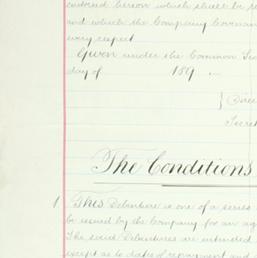 entered herein which shall be
and which the Company Covenan
every respect
Given under the Common Sea
day of 189
Direc
Secret
The Conditions
1 This Debenture is one of a series
be issued by the Company for an agg
The said Debentures are intended
except as to dates of repayment and